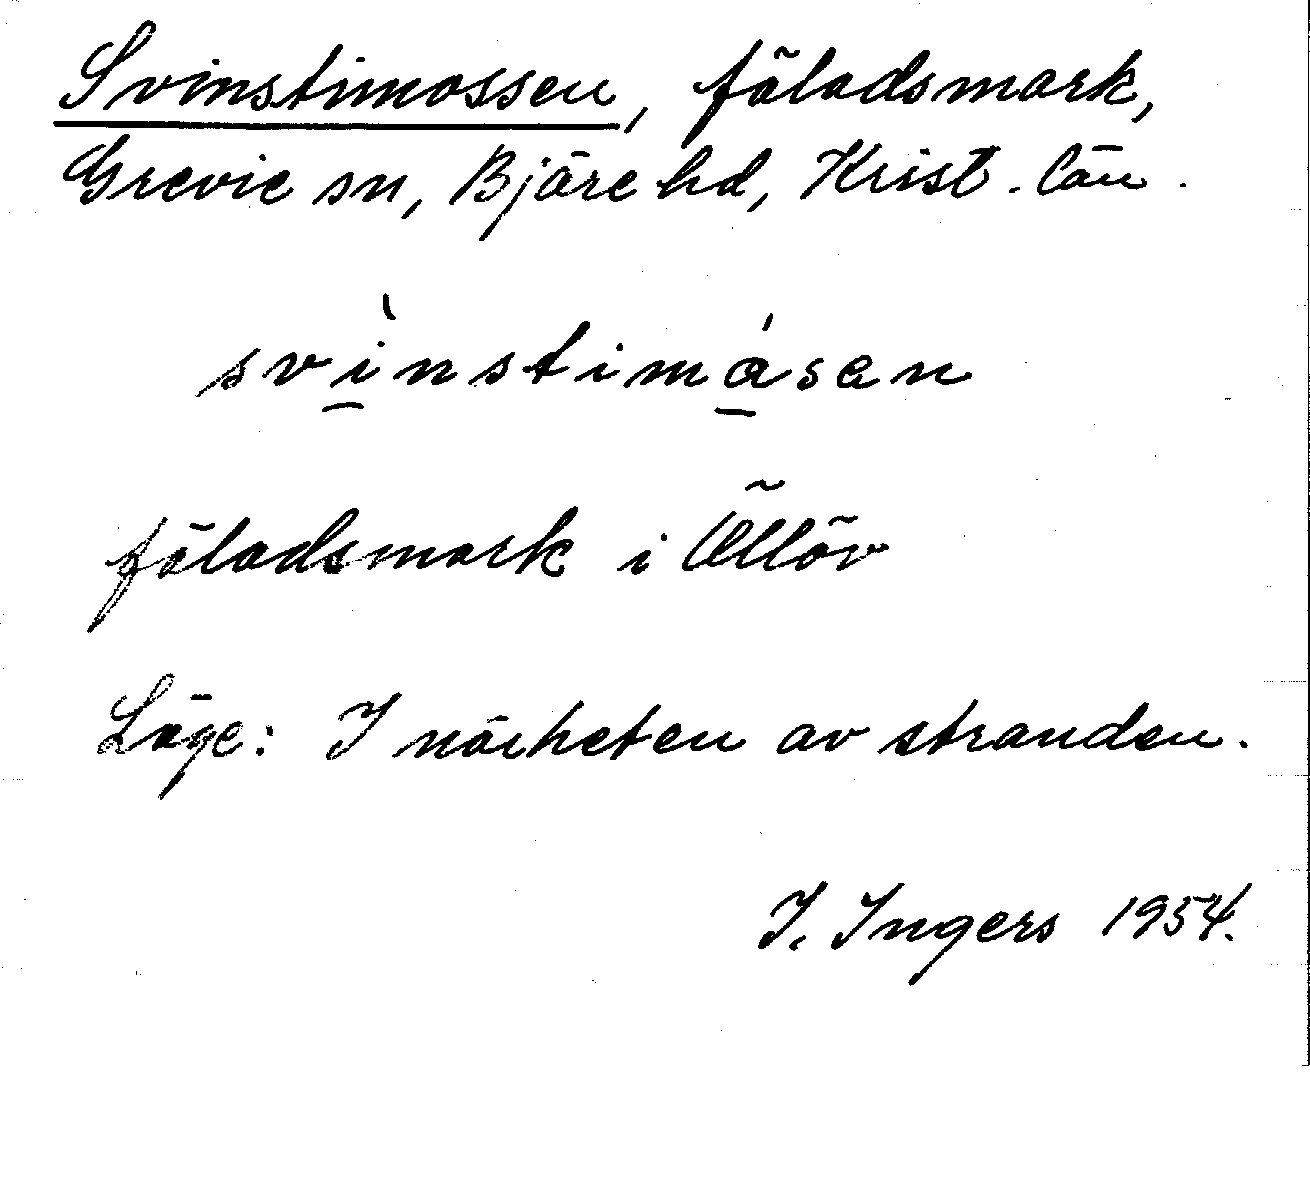 Svinstimossen, fäladsmark,
Grevie sn, Bjäre hd, Krist. län.
svì̱nstimá̱sen
fäladsmark i Ällöv
Läge: I närheten av stranden.
I. Ingers 1954.